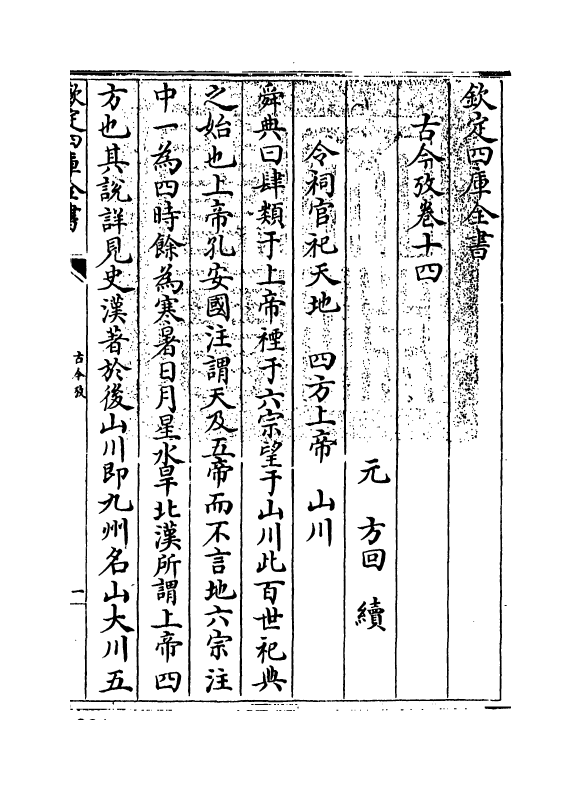 欽定四庫全書
古今攷卷十四
元 方回 續
令祠官祀天地 四方上帝 山川
舜典曰肆類于上帝禋于六宗望于山川此百世祀典
之始也上帝孔安國注謂天及五帝而不言地六宗注
中一為四時餘為寒暑日月星水旱北漢所謂上帝四
方也其說詳見史漢著於後山川即九州名山大川五
欽定四庫全書
古今攷
一